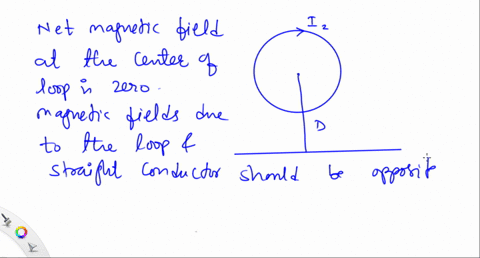 Net magnetic field
at the center of
loop is zero.
magnetic fields due
to the loop &
straight conductor should be opposite
I2
D